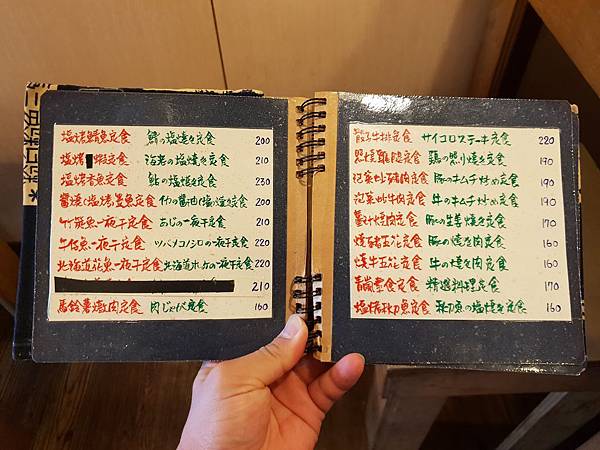 塩烤鯖魚定食 鯖の塩焼き定食 200
塩烤 蝦定食 海老の塩焼き定食 210
塩烤香魚定食 鮎の塩焼き定食 230
醬燒(塩烤)墨魚定食 イカの醤油(塩)焼き定食 200
竹筴魚一夜干定食 あじの一夜干定食 210
午仔魚一夜干定食 ツバメコノシロの一夜干定食 220
北海道花魚一夜干定食 北海道ホッケの一夜干定食 220
210
馬鈴薯燉肉定食 肉じゃが定食 160
骰子牛排定食 サイコロステーキ定食 220
照燒雞腿定食 鶏の照り焼き定食 190
泡菜炒豬肉定食 豚のキムチ炒め定食 190
泡菜炒牛肉定食 牛のキムチ炒め定食 190
薑汁燒肉定食 豚の生姜焼き定食 170
燒豬五花定食 豚の焼き肉定食 160
燒牛五花定食 牛の焼き肉定食 160
素食定食 精進料理定食 170
塩烤秋刀魚定食 秋刀魚の塩焼き定食 160